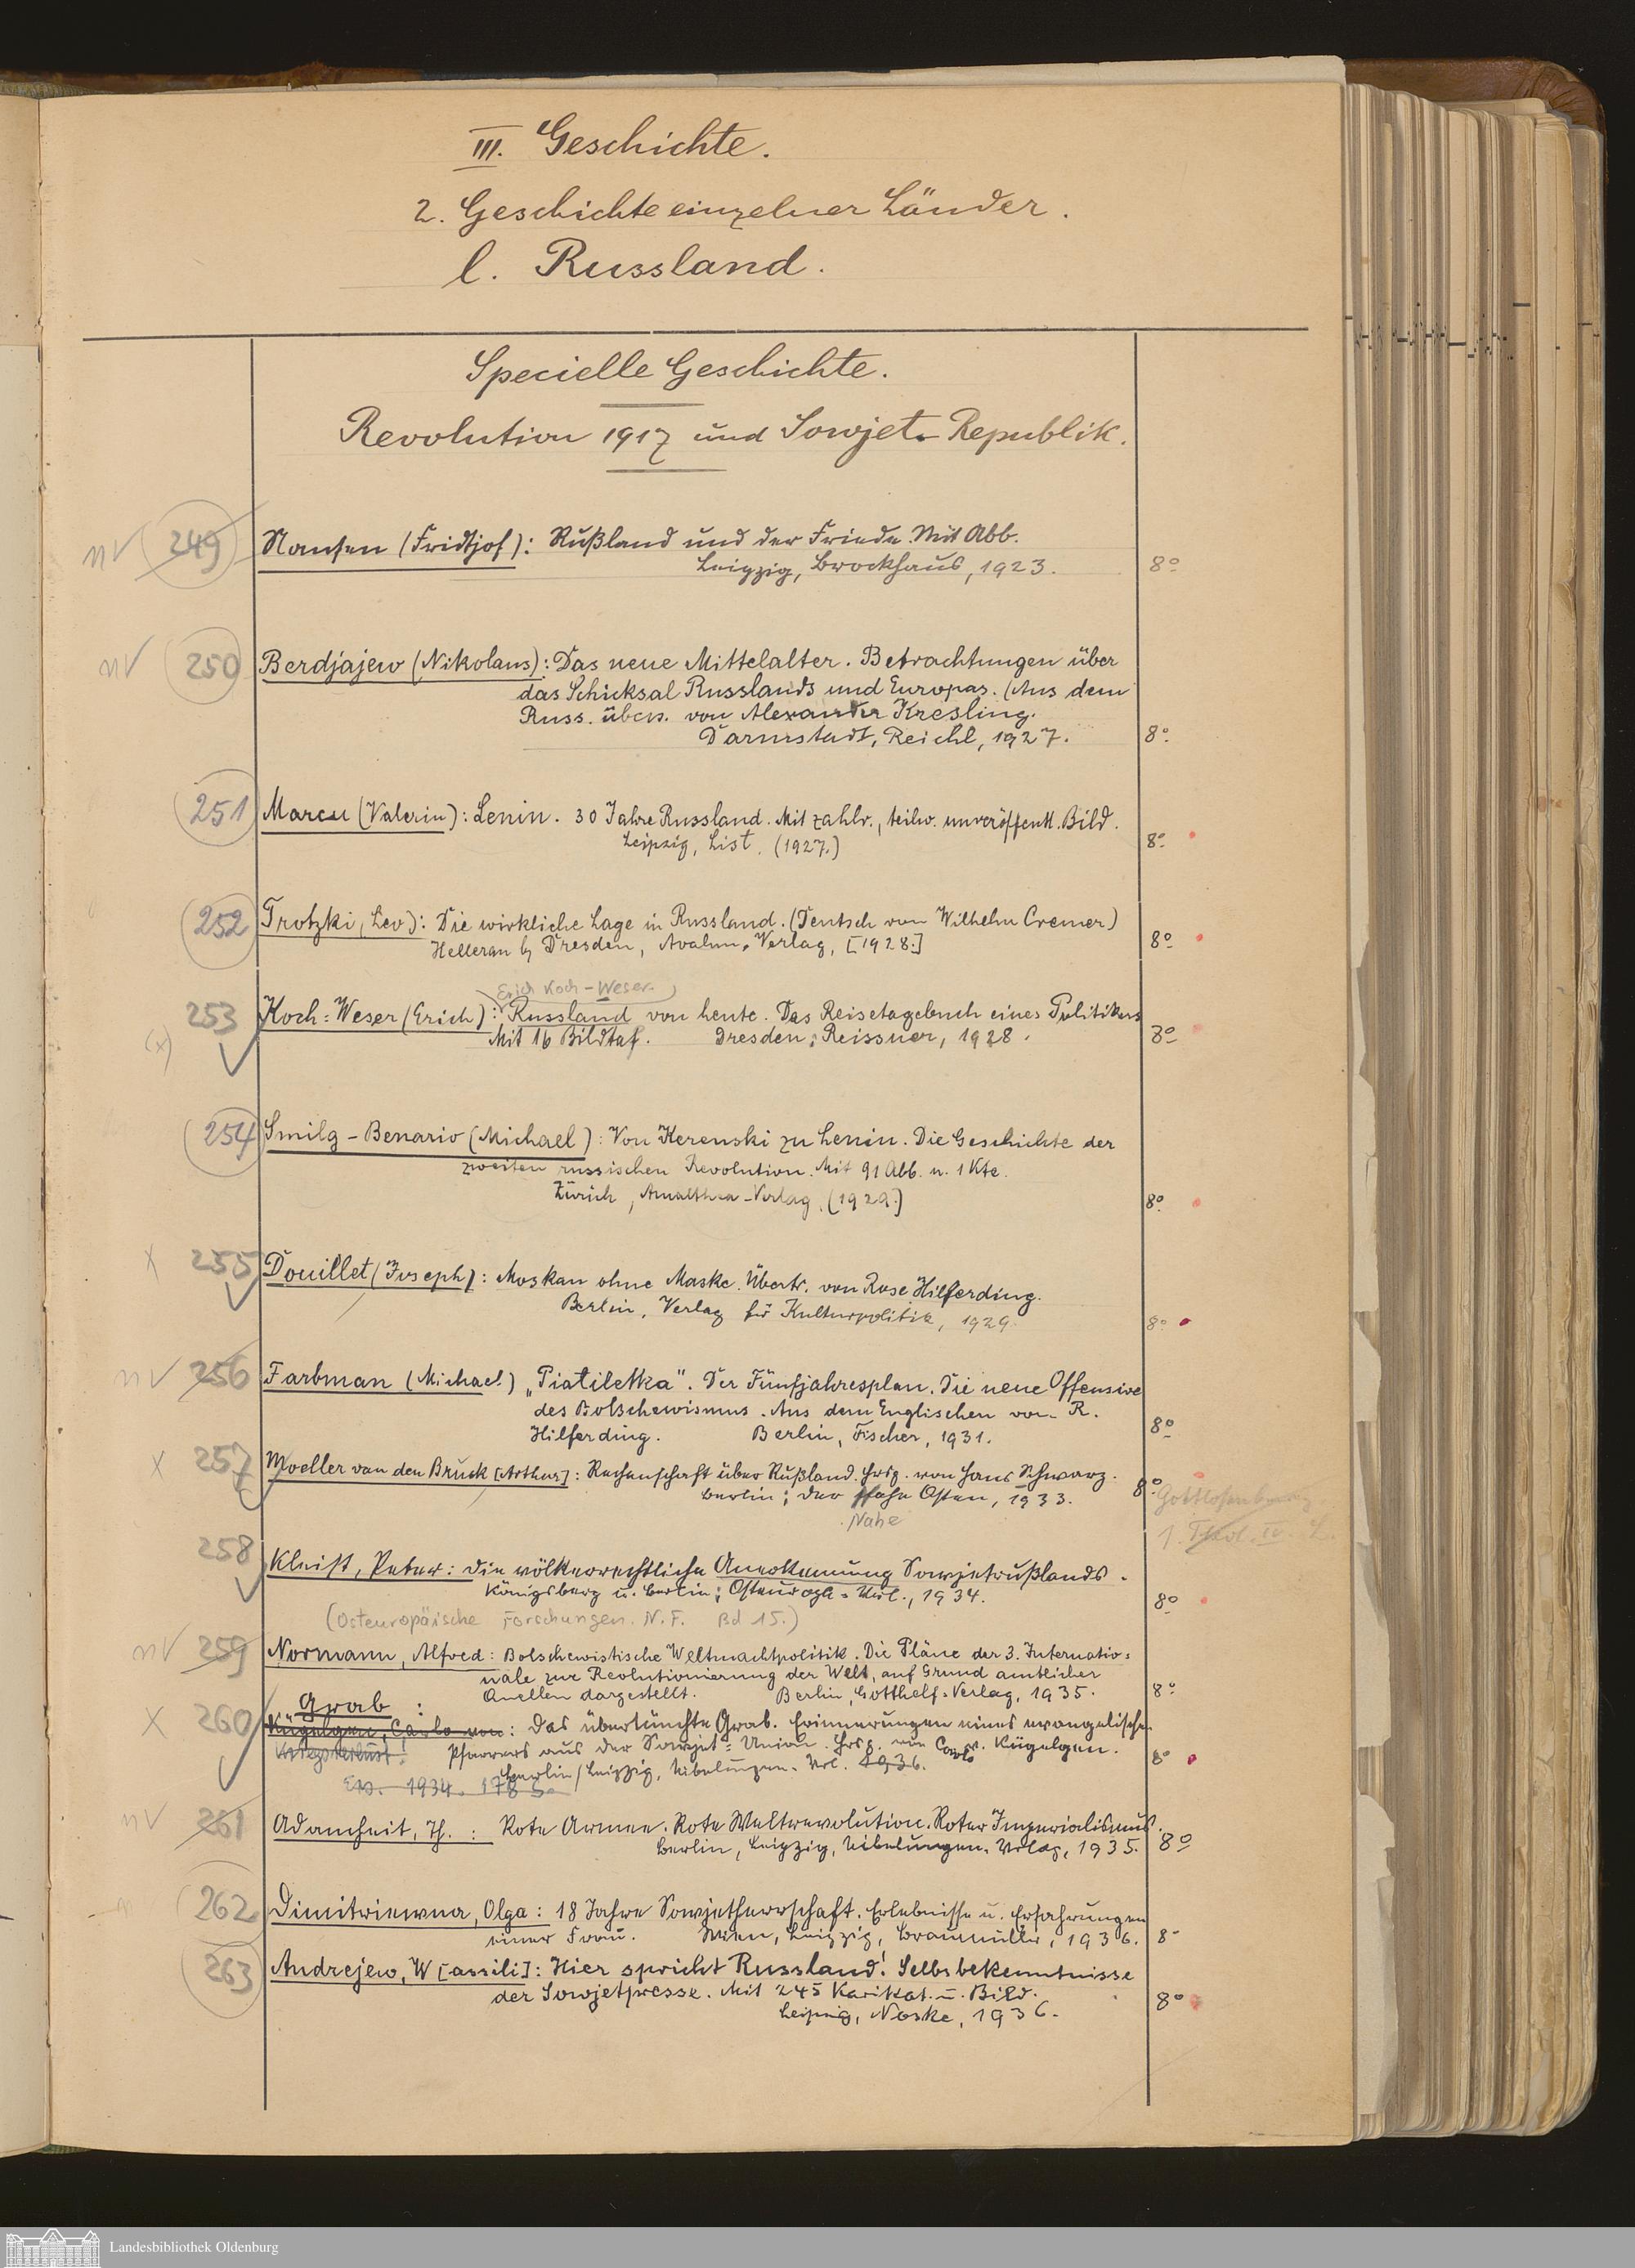 III. Geschichte.
2. Geschichte einzelner Länder.
l. Russland.
Specielle Geschichte.
Revolution 1917 und Sowjet-Republik.
nv 249 Nansen (Fridtjof): Rußland und der Friede. Mit Abb.
Leipzig, Brockhaus, 1923. 8°
nv 250 Berdjajew (Nikolaus): Das neue Mittelalter. Betrachtungen über
das Schicksal Russlands und Europas. (Aus dem
Russ. übers. von Alexander Kresling.
Darmstadt, Reichl, 1927. 8°
251 Marcu (Valeriu): Lenin. 30 Jahre Russland. Mit zahlr., teilw. unveröffentl. Bild.
Leipzig, List. (1927.) 8°
252 Trotzki, Leo): Die wirkliche Lage in Russland. (Deutsch von Wilhelm Cremer)
Hellerau b/ Dresden, Avalun-Verlag, [1928.] 8°
Erich Koch-Weser
253 Koch=Weser (Erich): Russland von heute. Das Reisetagebuch eines Politikers
(x) Mit 16 Bildtaf. Dresden: Reissner, 1928. 8°
254 Smilg-Benario (Michael): Von Kerenski zu Lenin. Die Geschichte der
zweiten russischen Revolution. Mit 91 Abb. u. 1 Kte.
Zürich, Amalthea-Verlag, (1929.) 8°
x 255 Douillet (Joseph): Moskau ohne Maske. Übertr. von Rose Hilferding.
Berlin, Verlag für Kulturpolitik, 1929. 8°
nv 256 Farbman (Michael) „Piatiletka". Der Fünfjahresplan. Die neue Offensive
des Bolschewismus. Aus dem Englischen von R.
Hilferding. Berlin, Fischer, 1931. 8°
x 257 Moeller van den Bruck [Arthur]: Rechenschaft über Rußland. Hrsg. von Hans Schwarz.
Berlin: Der Nahe Osten, 1933. 8°
Nahe
1. Theol. IV. L.
258 Kleist, Peter: Die völkerrechtliche Anerkennung Sowjetrußlands.
Königsberg u. Berlin: Osteuropa=Verl., 1934. 8°
(Osteuropäische Forschungen. N.F. Bd 15.)
nv 259 Normann, Alfred: Bolschewistische Weltmachtpolitik. Die Pläne der 3. Internatio=
nale zur Revolutionierung der Welt, auf Grund amtlicher
Quellen dargestellt. Berlin, Gotthelf=Verlag, 1935. 8°
Grab :
x 260 Kügelgen, Carlo von: Das übertünchte Grab. Erinnerungen eines evangelischen
Kriegsverlust. Pfarrers aus der Sowjet=Union. Hrsg. von Carlo v. Kügelgen.
Berlin/Leipzig, Nibelungen-Verl. 1936. 8°
Ex. 1934. 178 S.
nv 261 Adamheit, Th. : Rote Armee. Rote Weltrevolution. Roter Imperialismus.
Berlin, Leipzig, Nibelungen-Verlag, 1935. 8°
262 Dimitriewna, Olga: 18 Jahre Sowjetherrschaft. Erlebnisse u. Erfahrungen
einer Frau. Wien, Leipzig, Braumüller, 1936. 8°
263 Andrejew, W[assili]: Hier spricht Russland! Selbsbekenntnisse
der Sowjetpresse. Mit 245 Karikat. u. Bild.
Leipzig, Noske, 1936. 8°
Landesbibliothek Oldenburg